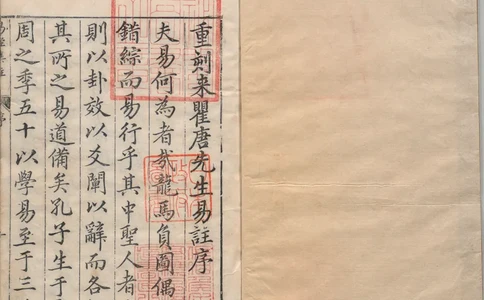 重刻来瞿唐先生易註序
夫易何為者哉龍馬負圖偶
錯綜而易行乎其中聖人者
則以卦效以爻闡以辭而各
其所之易道備矣孔子生于
周之季五十以學易至于三